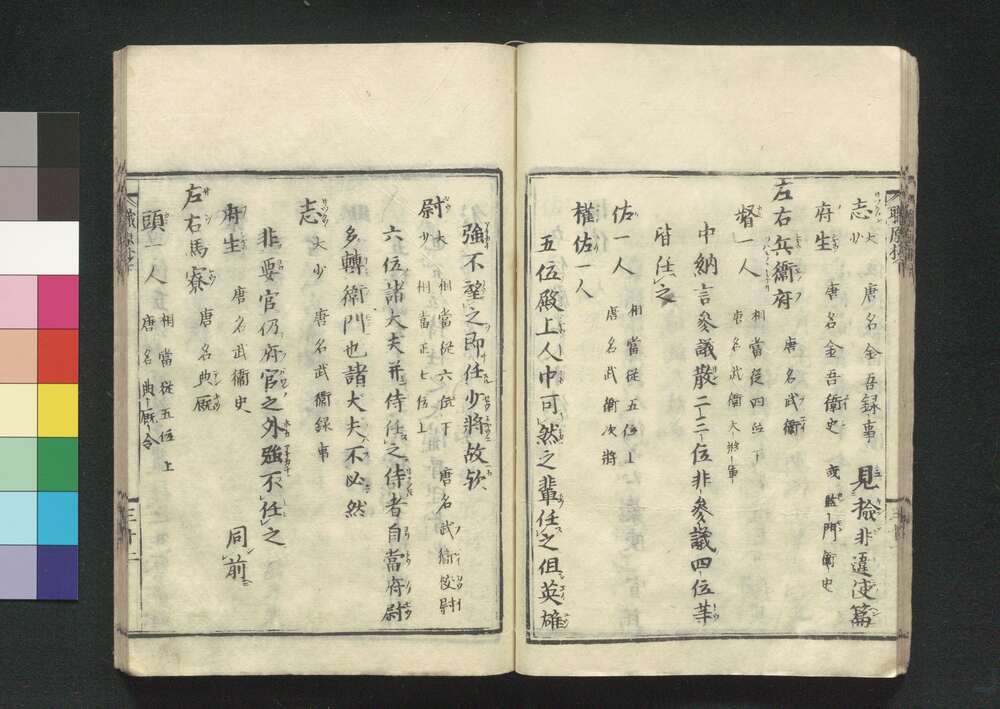 職原抄
志 大少 唐名金吾録事 見撿非違使篇
府生 唐名金吾衛史 或監門衛史
左右兵衛府 唐名武衛
督一人 相當從四位下 唐名武衛大將軍
中納言参議散二三位非参議四位等
皆任之
佐一人 相當從五位上 唐名武衛次將
權佐一人
五位殿上人中可然之輩任之但英雄
強不望之即任少將故欤
尉 大 相當從六位下 少 相當正七位上 唐名武衛校尉
六位諸大夫并侍任之侍者自當府尉
多轉衛門也諸大夫不必然
志 大少 唐名武衛録事
非要官仍府官之外強不任之
府生 唐名武衛史 同前
左右馬寮 唐名典厩
頭一人 相當從五位上 唐名典厩令
職原抄
三十二